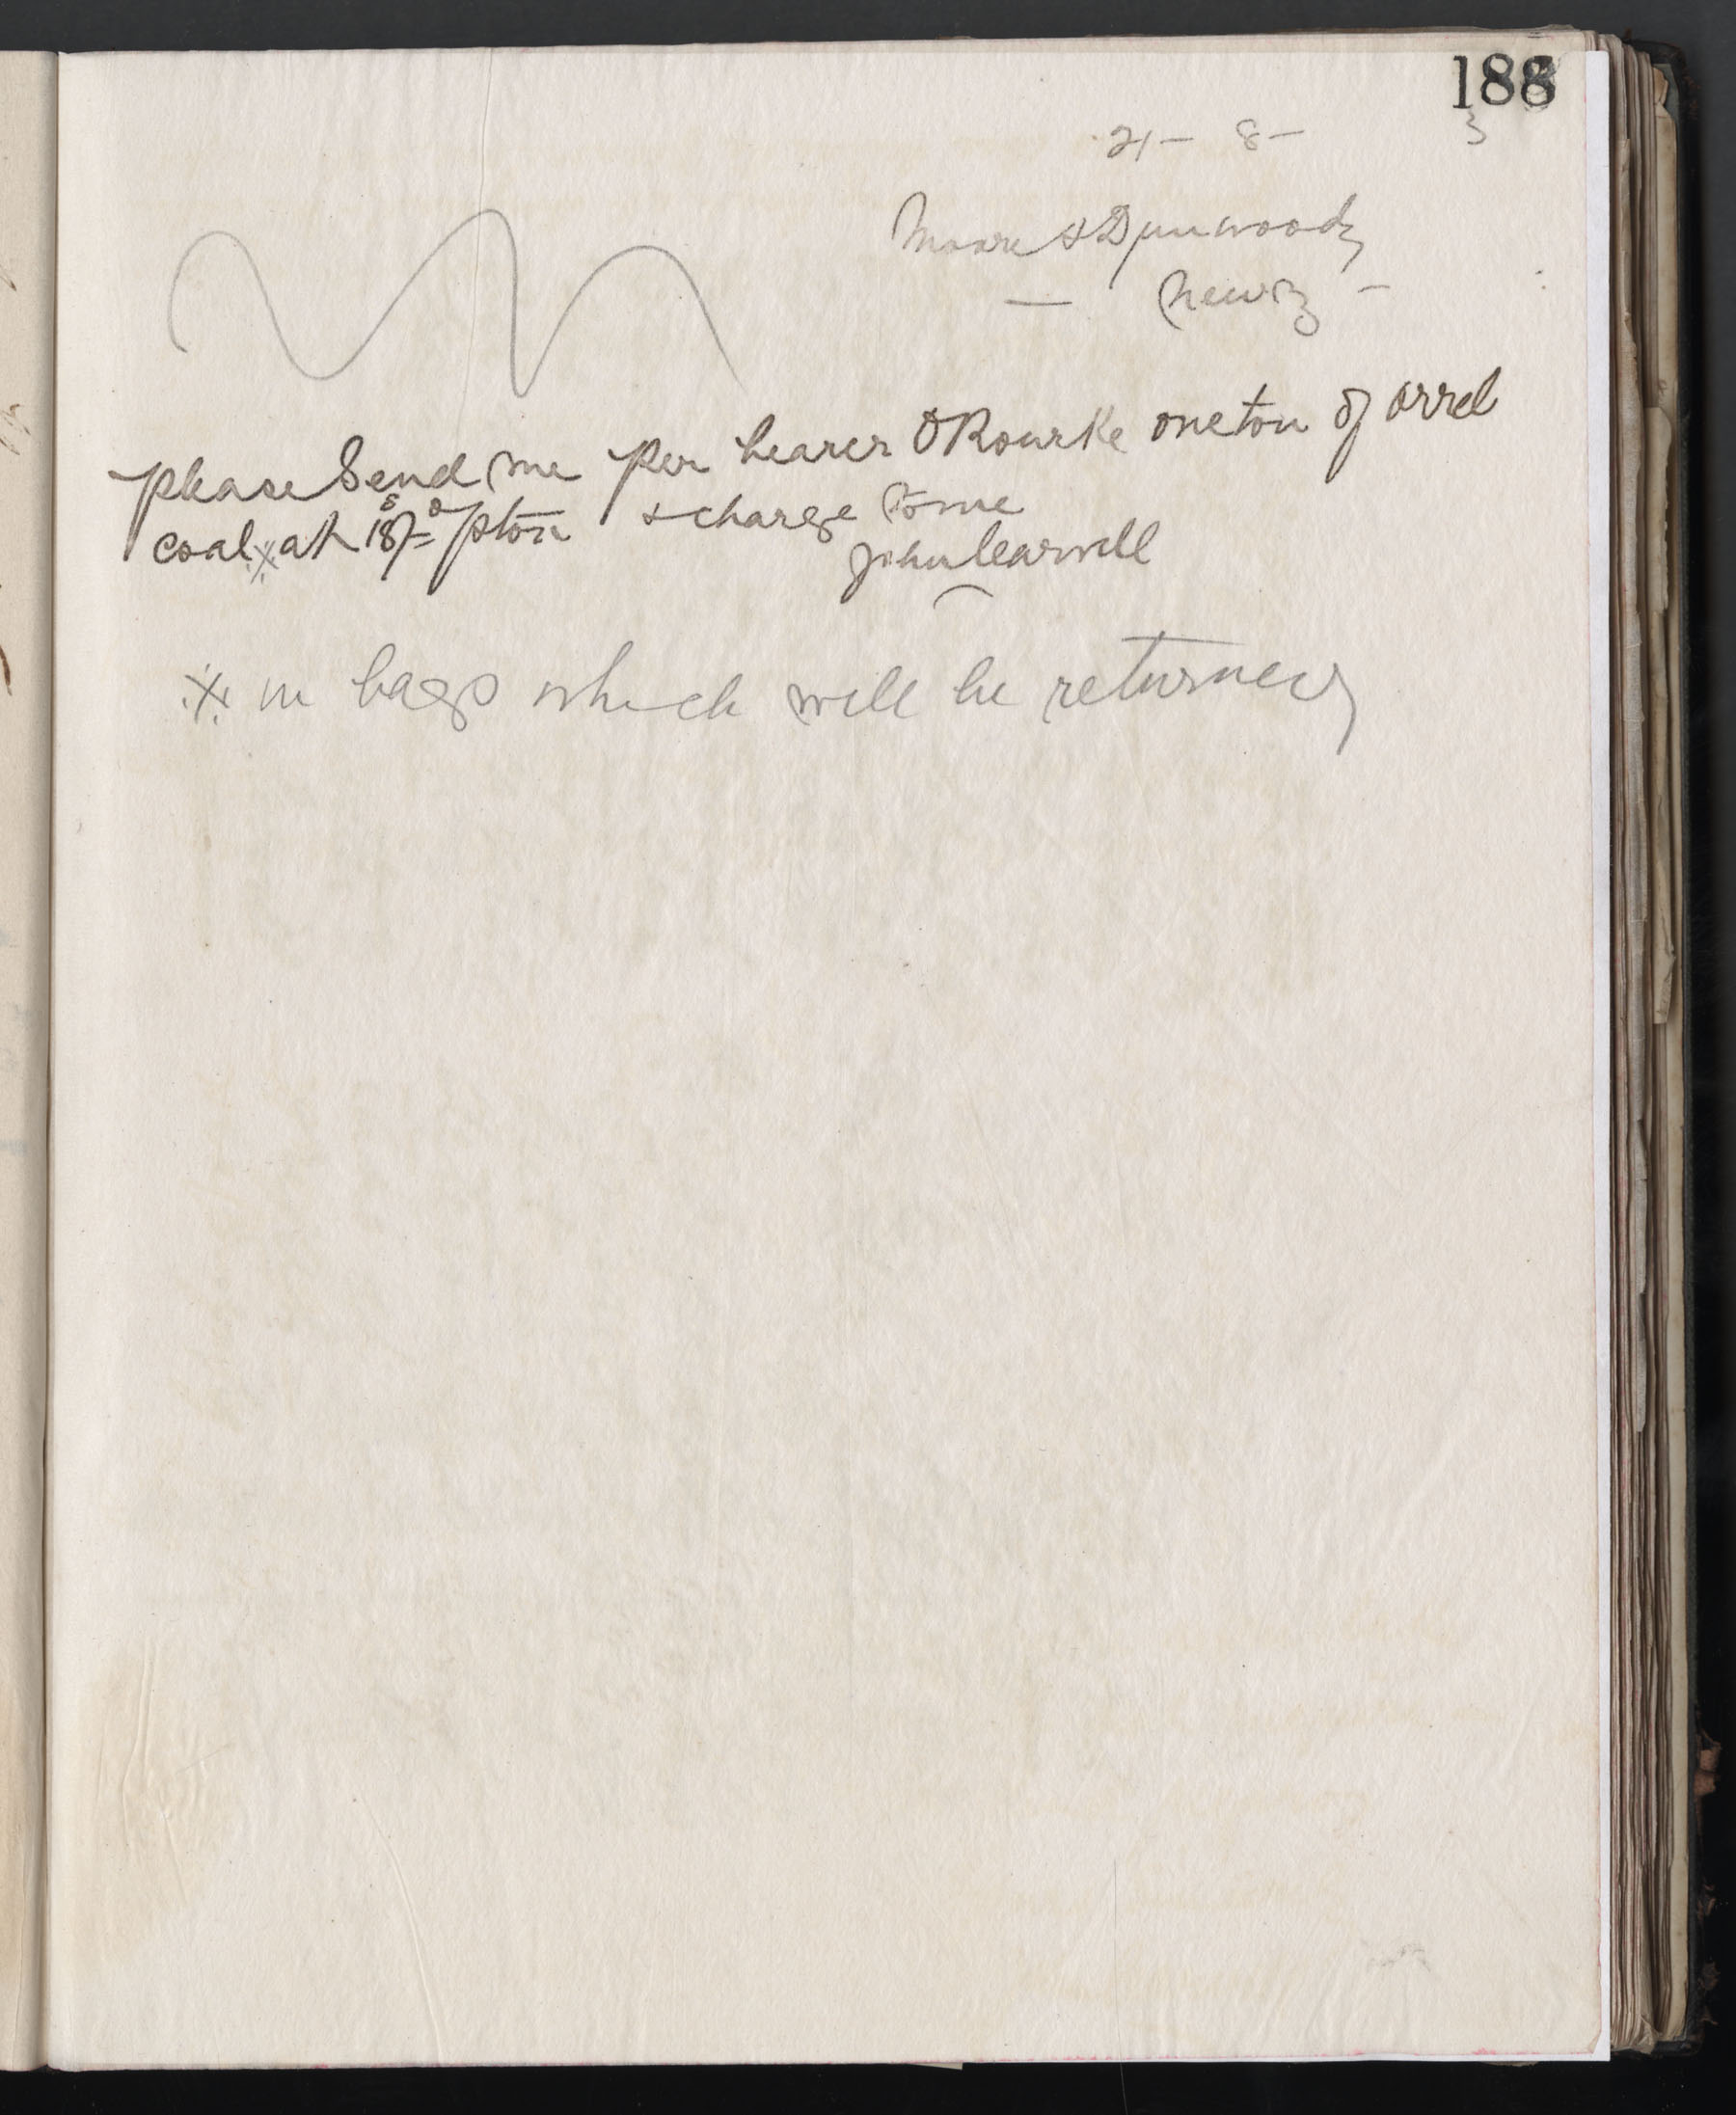 188
3
21 - 8 -
Moore & Dunwoody
- Newry -
please Send me per bearer O Rourke one ton of orrel
coal ※ at 18s/=d p ton & charge to me
John
※ in bags which will be returned